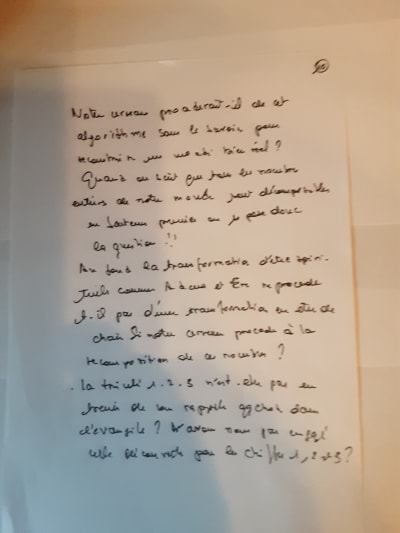 Notre cerveau procéderait-il de cet
algorithme sans le savoir pour
reconstruire un monde bien réel ?
Quand on sait que tous les nombres
entiers de notre monde sont décomposables
en facteurs premiers on se pose donc
la question !!
Au fond la transformation d'êtres spiri-
tuels comme Adam et Eve ne procède
t-il pas d'une transformation en être de
chair si notre cerveau procède à la
recomposition de ces nombres ?
. La trinité 1.2.3 n'est-elle pas en
train de nous rappeler qqchose dans
l'évangile ? N'avons nous pas
celle par les chiffres 1, 2 et 3 ?